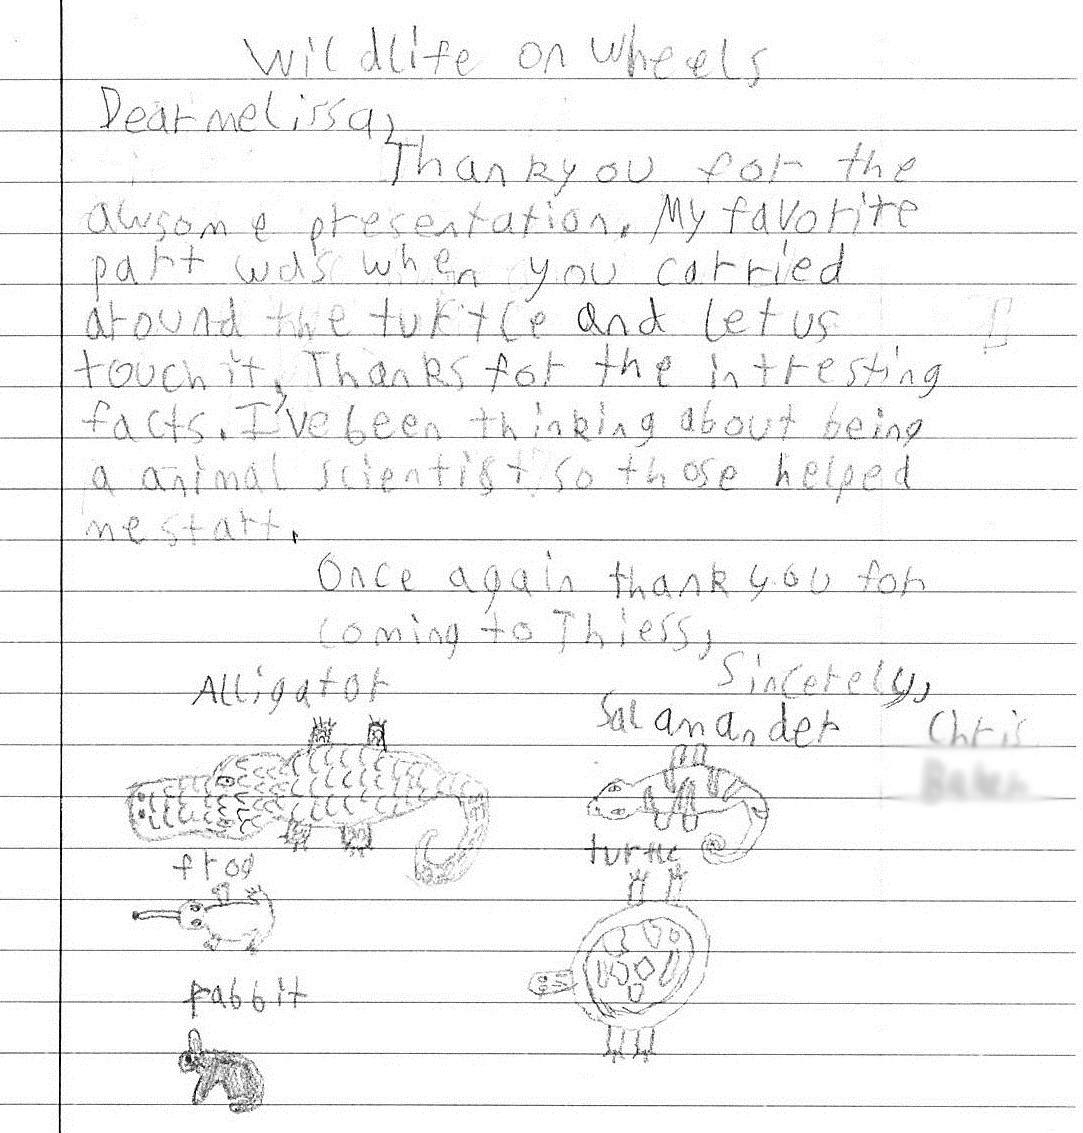 Wildlife on Wheels
Dear melissa,
Thank you for the
awsome presentation. My favorite
part was when you carried
around the turtle and let us
touch it. Thanks for the intresting
facts. I've been thinking about being
a animal scientist so those helped
me start.
Once again thank you for
coming to Thiess,
Sincerely,
Chris
Alligator
Salamander
frog
turtle
rabbit